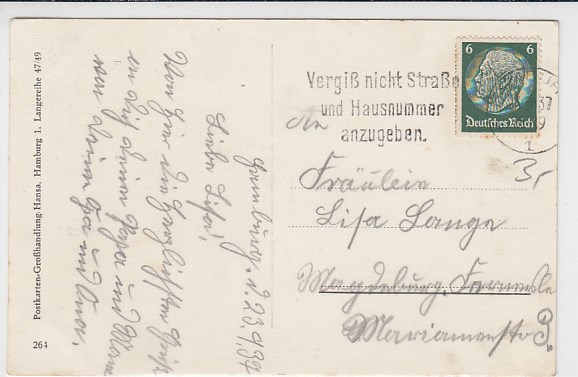 Postkarten-Großhandlung-Hansa, Hamburg 1, Langereihe 47/49
264
Hamburg, d. 23.9.37
Liebe Lisa,
Von hier die herzlichsten Grüße
an Dich Deinen Papa und Mama
von Deiner und
Vergiß nicht Straße
und Hausnummer
anzugeben.
6 6
Deutsches Reich
37
9
1
3,-
An
Fräulein
Lisa Lange
Magdeburg,